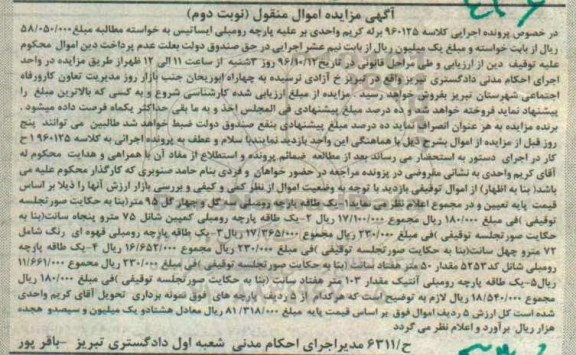 آگهی مزایده اموال منقول (نوبت دوم)
در خصوص پرونده اجرایی کلاسه ۹۶۰۱۲۵ برله کریم واحدی بر علیه پارچه رومبلی ایساتیس به خواسته مطالبه مبلغ ۵۸/۰۵۰/۰۰۰
ریال از بابت خواسته و مبلغ یک میلیون ریال از بابت نیم عشر اجرایی در حق صندوق دولت بعلت عدم پرداخت دین اموال محکوم
علیه توقیف دین از ارزیابی و طی مراحل قانونی در تاریخ ۹۶/۱۰/۱۲ روز ۳شنبه از ساعت ۱۱ الی ۱۲ ظهراز طریق مزایده در واحد
اجرای احکام مدنی دادگستری تبریز واقع در تبریز خ آزادی نرسیده به چهاراه ابوریحان جنب بازار روز مدیریت تعاون کارورفاه
اجتماعی شهرستان تبریز بفروش خواهد رسید مزایده از مبلغ ارزیابی شده کارشناسی شروع و به کسی که بالاترین مبلغ را
پیشنهاد نماید فروخته خواهد شد و ده درصد مبلغ پیشنهادی فی المجلس اخذ و به ما بقی حداکثر یکماه فرصت داده میشود .
برنده مزایده به هر عنوان انصراف نماید ده درصد مبلغ پیشنهادی بنفع صندوق دولت ضبط خواهد شد طالبین می توانند پنج
روز قبل از مزایده از اموال بشرح ذیل با هماهنگی این واحد بازدید نمایندبا سلام و عطف به پرونده اجرائی به کلاسه ۹۶۰۱۲۵ اح
کار در اجرای دستور به استحضار می رساند بعد از مطالعه ضمائم پرونده و استطلاع از مفاد آن با همراهی و هدایت محکوم له
آقای کریم واحدی به نشانی مقروضی در پرونده مراجعه در حضور خواهان و فردی بنام حامد صنوبری که کارگذار محکوم علیه می
باشد( بنا به اظهار) از اموال توقیفی بازدید با توجه به وضعیت اموال از نظر کمی و کیفی و بررسی بازار ارزش آنها را ذیلا بر اساس
قیمت پایه تعیین و در مجموع اعلام نظر می نماید۱-یک طاقه پارچه رومبلی سه گل و چهار گل ۹۵ متر(بنا به حکایت صورتجلسه
توقیفی )فی مبلغ ۱۸۰/۰۰۰ ریال مجموع ۱۷/۱۰۰/۰۰۰ ریال ۲-یک طاقه پارچه رومبلی کمپین شانل ۷۵ مترو پنجاه سانت(بنا به
حکایت صورتجلسه توقیفی )فی مبلغ ۲۳۰/۰۰۰ ریال مجموع ۱۷/۳۶۵/۰۰۰ ریال۳-یک طاقه پارچه رومبلی قهوه ای رنگ شامل
۷۲ مترو چهل سانت(بنا به حکایت صورتجلسه توقیفی )فی مبلغ ۲۳۰/۰۰۰ ریال مجموع ۱۶/۶۵۲/۰۰۰ ریال ۴-یک طاقه پارچه
رومبلی شانل کد۵۲۵۳ مقدار ۵۰ متر هفتاد سانت (بنا به حکایت صورتجلسه توقیفی )فی مبلغ ۲۳۰/۰۰۰ ریال مجموع ۱۱/۶۶۱/۰۰۰
ریال۵-یک طاقه پارچه رومبلی آنتیک مقدار ۱۰۳ متر هفتاد سانت (بنا به حکایت صورتجلسه توقیفی )فی مبلغ ۱۸۰/۰۰۰ ریال
مجموع ۱۸/۵۴۰/۰۰۰ ریال لازم به توضیح است که هرکدام از ۵ ردیف پارچه های فوق نمونه برداری تحویل آقای کریم واحدی
شده است کل ارزش ۵ ردیف اموال فوق بر اساس قیمت پایه مبلغ ۸۱/۳۱۸/۰۰۰ ریال معادل هشتادو یک میلیون و سیصدو هجده
هزار ریال برآورد و اعلام نظر می گردد
ح/۶۳۱۱ مدیراجرای احکام مدنی شعبه اول دادگستری تبریز –باقر پور